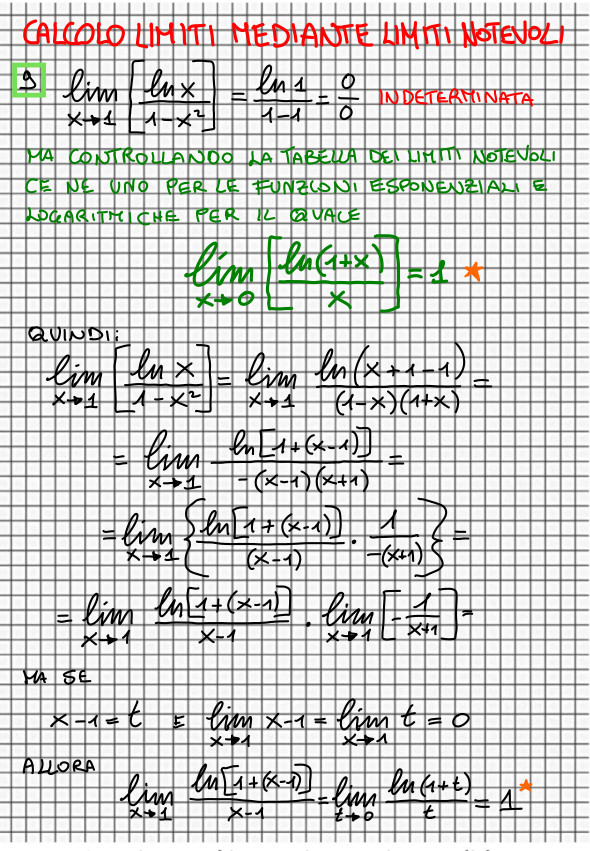 CALCOLO LIMITI MEDIANTE LIMITI NOTEVOLI
9 lim x→1 [ln x / 1-x²] = ln 1 / 1-1 = 0/0 INDETERMINATA
MA CONTROLLANDO LA TABELLA DEI LIMITI NOTEVOLI
CE NE UNO PER LE FUNZIONI ESPONENZIALI E
LOGARITMICHE PER IL QUALE
lim x→0 [ln(1+x) / x] = 1 *
QUINDI:
lim x→1 [ln x / 1-x²] = lim x→1 ln(x+1-1) / (1-x)(1+x) =
= lim x→1 ln[1+(x-1)] / -(x-1)(x+1) =
= lim x→1 {ln[1+(x-1)] / (x-1) · 1 / -(x+1)} =
= lim x→1 ln[1+(x-1)] / x-1 · lim x→1 [- 1 / x+1] =
MA SE
x-1 = t E lim x→1 x-1 = lim x→1 t = 0
ALLORA
lim x→1 ln[1+(x-1)] / x-1 = lim t→0 ln(1+t) / t = 1*